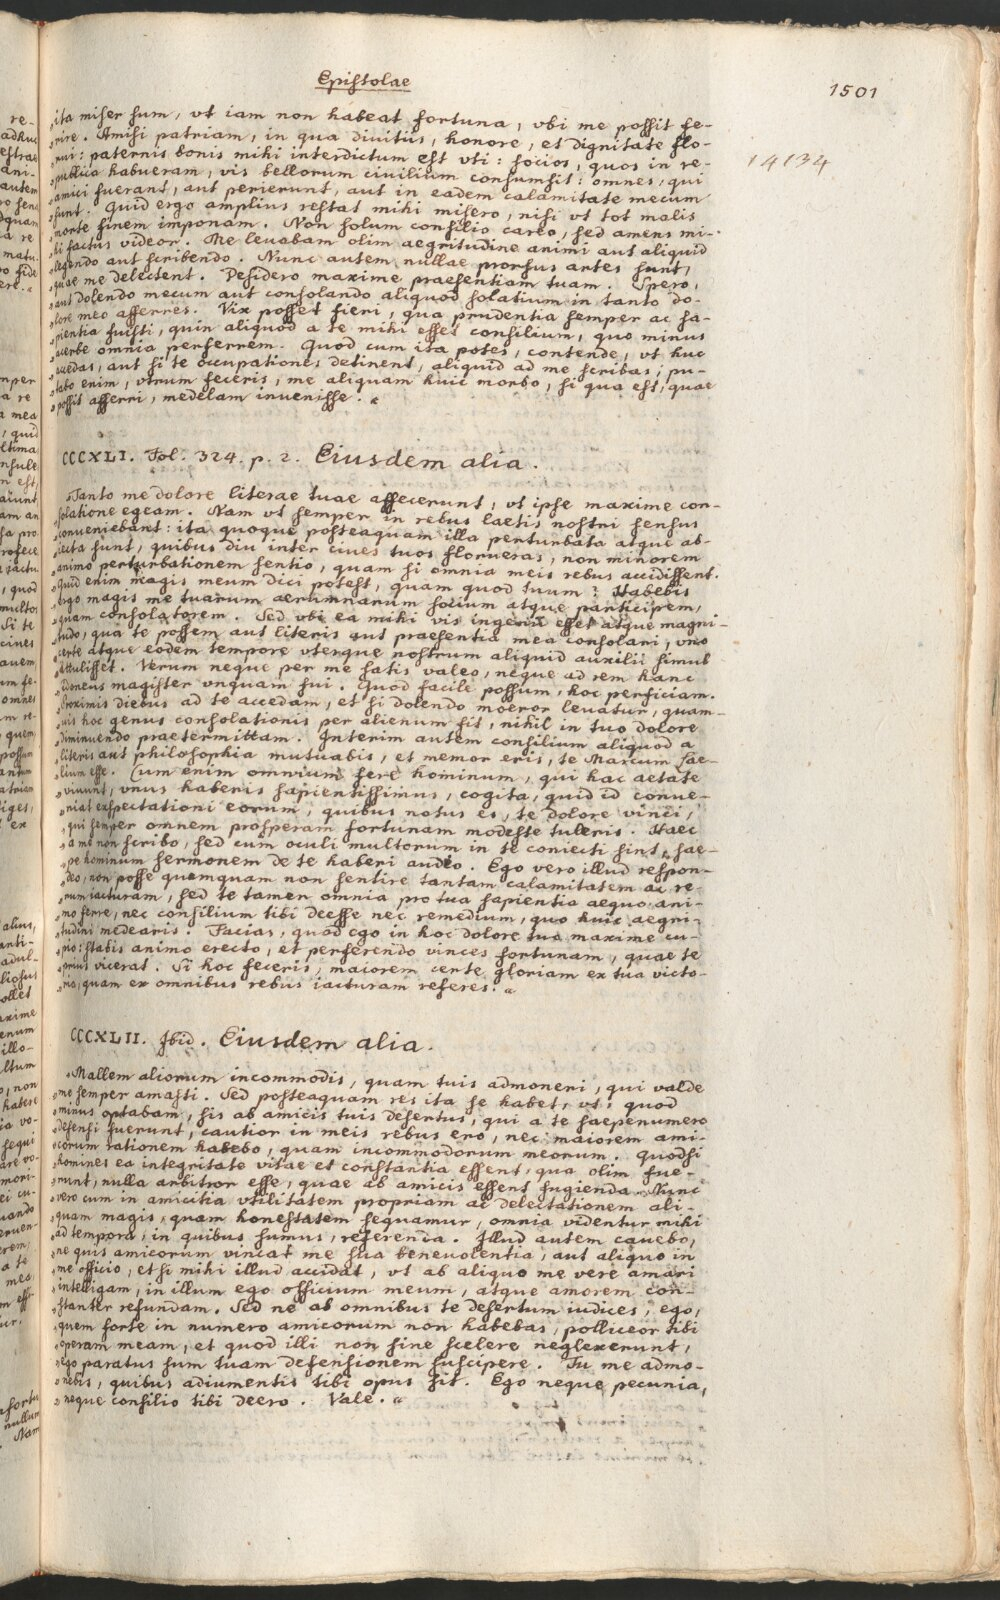 Epistolae
1501
14134
„ita miser sum, vt iam non habeat fortuna, vbi me possit fe-
„rire. Amisi patriam, in qua divitiis, honore, et dignitate flo-
„rui: paternis bonis mihi interdictum est vti: socios, quos in re-
„publica habueram, vis bellorum civilium consumsit: omnes, qui
„amici fuerant, aut perierunt, aut in eadem calamitate mecum
„sunt. Quid ergo amplius restat mihi misero, nisi vt tot malis
„morte finem imponam. Non solum consilio careo, sed amens mi-
„hi factus videor. Me leuabam olim aegritudine animi aut aliquid
„legendo aut scribendo. Nunc autem nullae prorsus artes sunt,
„quae me delectent. Desidero maxime praesentiam tuam. Spero,
„aut dolendo mecum aut consolando aliquod solatium in tanto do-
„lore meo afferres. Vix posset fieri, qua prudentia semper ac sa-
„pientia fuisti, quin aliquod a te mihi esset consilium, quo minus
„acerbe omnia perferrem. Quod cum ita potes, contende, vt huc
„accedas, aut si te occupationes detinent, aliquid ad me scribas; pu-
„tabo enim, vtrum feceris, me aliquam huic morbo, si qua est, quae
„possit afferri, medelam invenisse. “
CCCXLI. Fol. 324. p. 2. Eiusdem alia.
„Tanto me dolore literae tuae affecerunt, vt ipse maxime con-
„solatione egeam. Nam vt semper in rebus laetis nostri sensus
„conveniebant: ita quoque posteaquam illa perturbata atque ab-
„iecta sunt, quibus diu inter ciues tuos florueras, non minorem
„animo perturbationem sentio, quam si omnia meis rebus accidissent.
„Quid enim magis meum dici potest, quam quod tuum? Habebis
„ergo magis me tuarum aerumnarum socium atque participem,
„quam consolatorem. Sed vbi ea mihi vis ingenii esset atque magni-
„tudo, qua te possem aut literis aut praesentia mea consolari, vno
„certe atque eodem tempore vterque nostrum aliquid auxilii simul
„attulisset. Verum neque per me satis valeo, neque ad rem hanc
„idoneus magister vnquam fui. Quod facile possum, hoc perficiam.
„Proximis diebus ad te accedam, et si dolendo moeror leuatur, quam-
„uis hoc genus consolationis per alienum sit, nihil in tuo dolore
„diminuendo praetermittam. Interim autem consilium aliquod a
„literis aut philosophia mutuabis, et memor eris, te Marcum Lae-
„lium esse. Cum enim omnium fere hominum, qui hac aetate
„viuunt, vnus haberis sapientissimus, cogita, quid id conue-
„niat exspectationi eorum, quibus notus es, te dolore vinci,
„qui semper omnem prosperam fortunam modeste tuleris. Haec
„a me non scribo, sed cum oculi multorum in te coniecti sint, sae-
„pe hominum sermonem de te haberi audio. Ego vero illud respon-
„deo, non posse quemquam non sentire tantam calamitatem ac re-
„rum iacturam, sed te tamen omnia pro tua sapientia aequo ani-
„mo ferre, nec consilium tibi deesse nec remedium, quo huic aegri-
„tudini medearis. Facias, quod ego in hoc dolore tuo maxime cu-
„pio: stabis animo erecto, et perferendo vinces fortunam, quae te
„prius vicerat. Si hoc feceris, maiorem certe gloriam ex tua victo-
„ria, quam ex omnibus rebus iacturam referes. “
CCCXLII. Ibid. Eiusdem alia.
„Mallem aliorum incommodis, quam tuis admoneri, qui valde
„me semper amasti. Sed posteaquam res ita se habet, vt, quod
„minus optabam, sis ab amicis tuis desertus, qui a te saepenumero
„defensi fuerunt, cautior in meis rebus ero, nec maiorem ami-
„corum rationem habebo, quam incommodorum meorum. Quodsi
„homines ea integritate vitae et constantia essent, qua olim fue-
„runt, nulla arbitror esse, quae ab amicis essent fugienda. Nunc
„vero cum in amicitia vtilitatem propriam ac delectationem ali-
„quam magis, quam honestatem sequamur, omnia videntur mihi
„ad tempora, in quibus sumus, referenda. Illud autem cauebo,
„ne quis amicorum vincat me sua benevolentia, aut aliquo in
„me officio, et si mihi illud accidat, vt ab aliquo me vere amari
„intelligam, in illum ego officium meum, atque amorem con-
„stanter refundam. Sed ne ab omnibus te desertum iudices, ego,
„quem forte in numero amicorum non habebas, polliceor tibi
„operam meam, et quod illi non sine scelere neglexerunt,
„ego paratus sum tuam defensionem suscipere. Tu me admo-
„nebis, quibus adiumentis tibi opus sit. Ego neque pecunia,
„neque consilio tibi deero. Vale. “